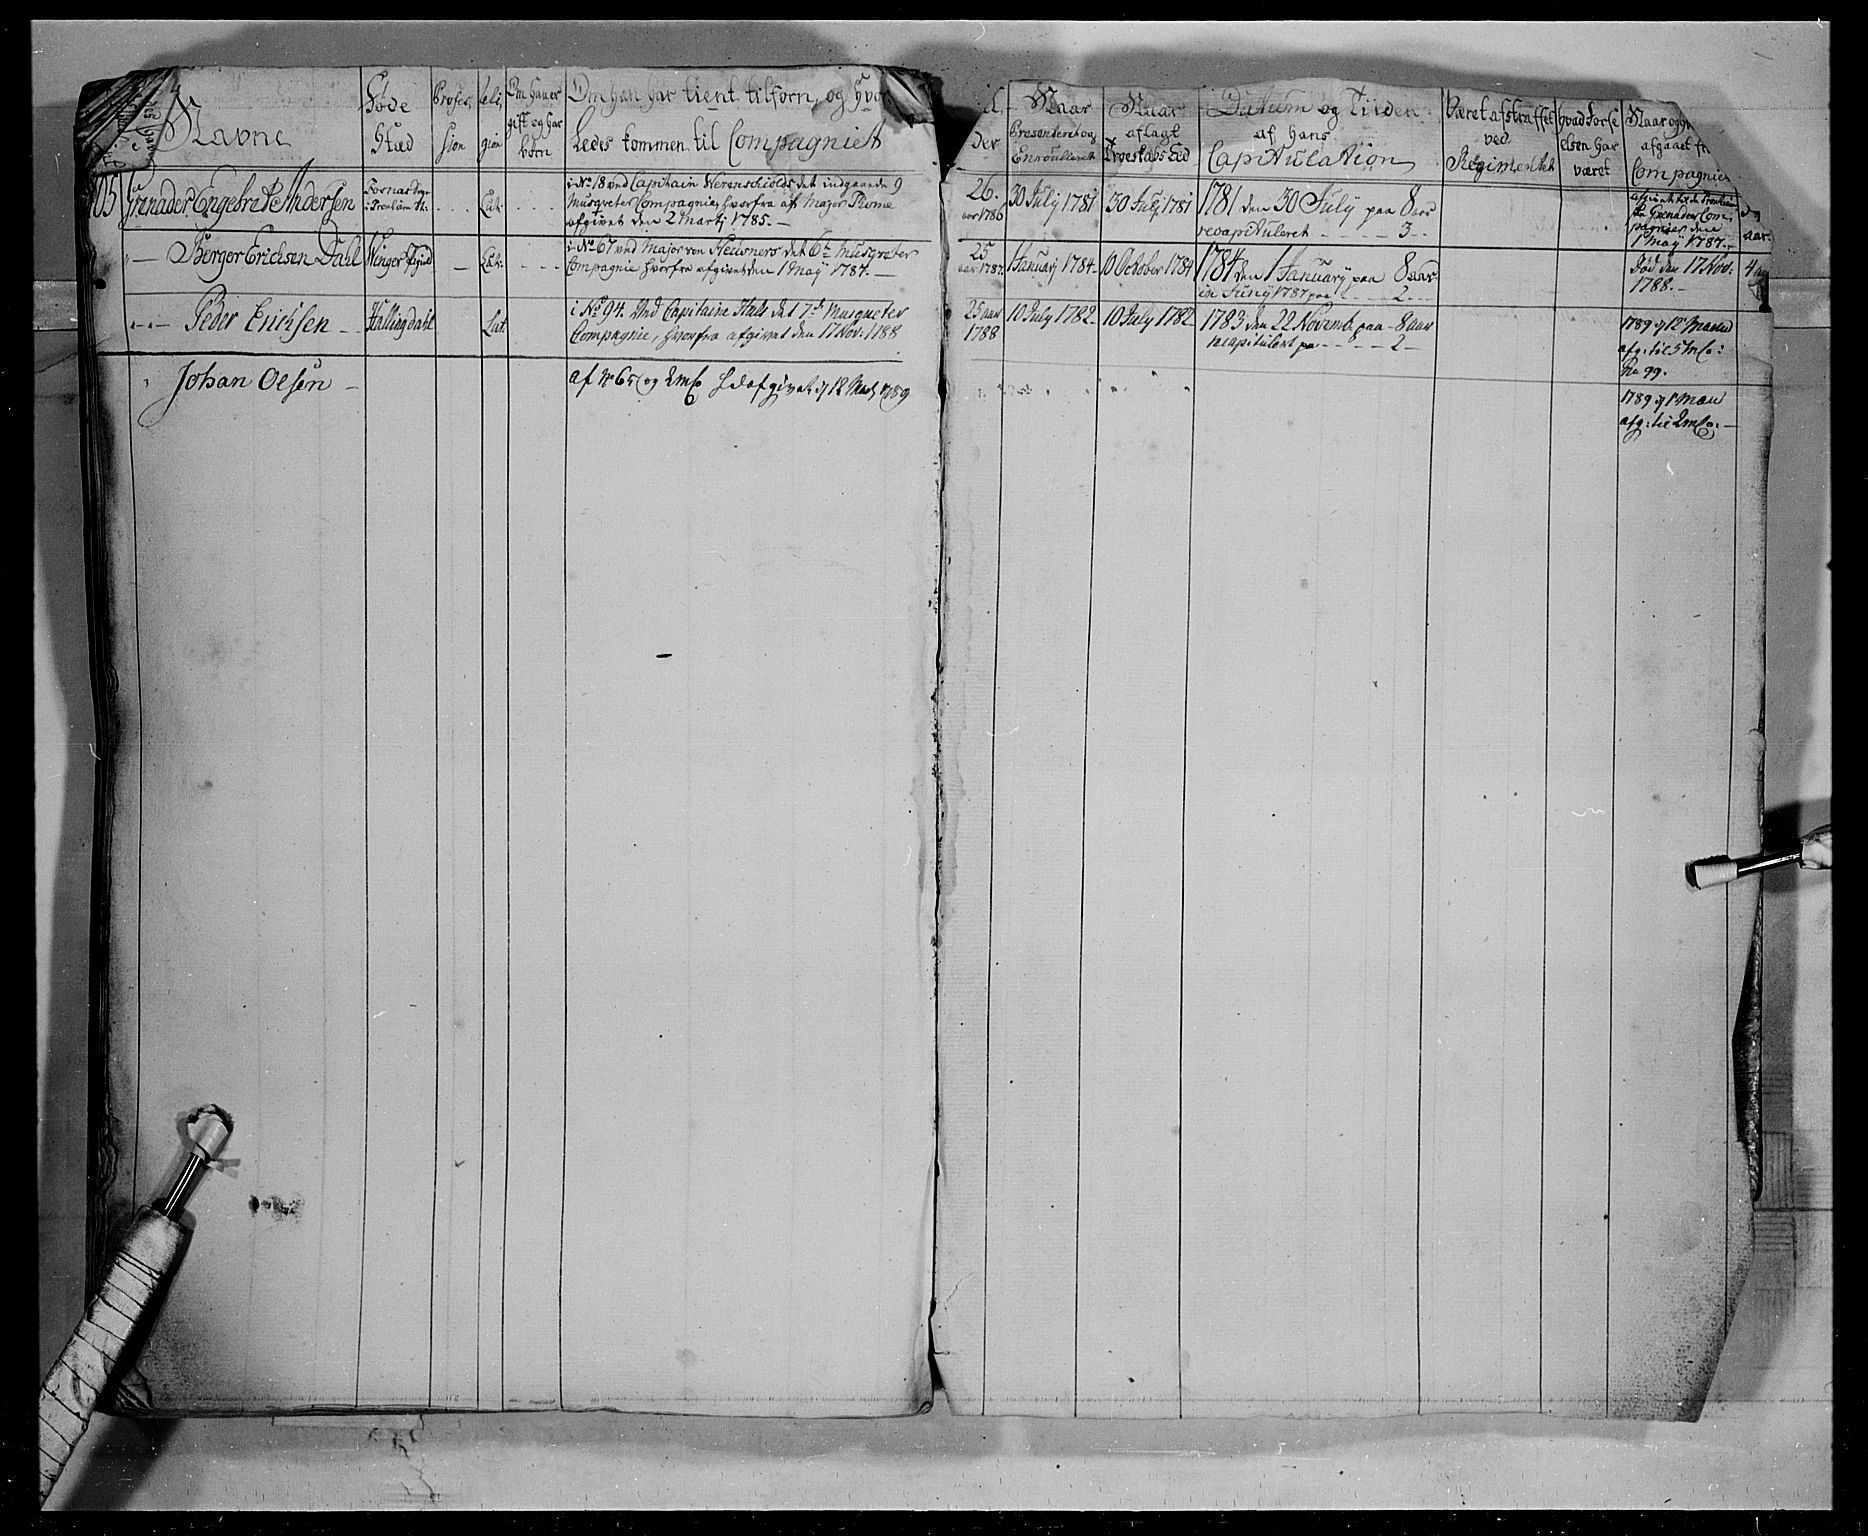 Navne
Føde
Stæd
Profes,
sion
Reli,
gion
Om han er
gift og har
børn
Om han har tient tilforn, og hvor,
Ledes kommen til Compagniet
der
Naar
Presenteret og
Enroulleret
Naar
aflagt
Troeskabs Eed
Datum og Tiiden
af hans
Capitulation
Været afstraffet
ved
Regimentet
hvad Forse
elsen har
været
Naar og
afgaaet fr
Compagnie
105 Grenader Engebret Andersen
Lut:
i No 18 ved Capitain Werenschiolds det indgaaede 9
Musqueter Compagnie, hvorfra af Major
afgivet den 2 Martj 1785. —
26.
aar 1786
30 July 1781
30 July 1781
1781 den 30 July paa 8 aar
recapituleret - - - - 3 - -
Grenader Com,
pagnier den
1 Maÿ 1787.
aar.
" — Børger Erichsen Dahl
Winger
Lut:
i No 67 ved Major von det 6te Musqveter
Compagnie hvorfra afgivet den 1 Maÿ 1787. —
25
aar 1787.
1 Januarj 1784.
10 October 1784
1784 den 1 Januarÿ paa 8 aar
in Junÿ 1787 paa - - - 2 - -
Død den 17 Nov:
1788. —
4 aar
" — " — Peder Erichsen —
Hallingdahl
Lut
i No 94. ved Capitaine det 7de Musqueter
Compagnie, hvorfra afgivet den 17 Nov: 1788
25 aar
1788
10 July 1782.
10 July 1782
1783 den 22 Novemb. paa - 8 aar
recapitulert paa - - - - 2 -
1789 d 12
afg: til 5 m Co:
No 99.
" Johan Olsen —
af No 65 og 2 m Co afgivet d 12 1789
1789 d 1
afg: til 2 m Co: —